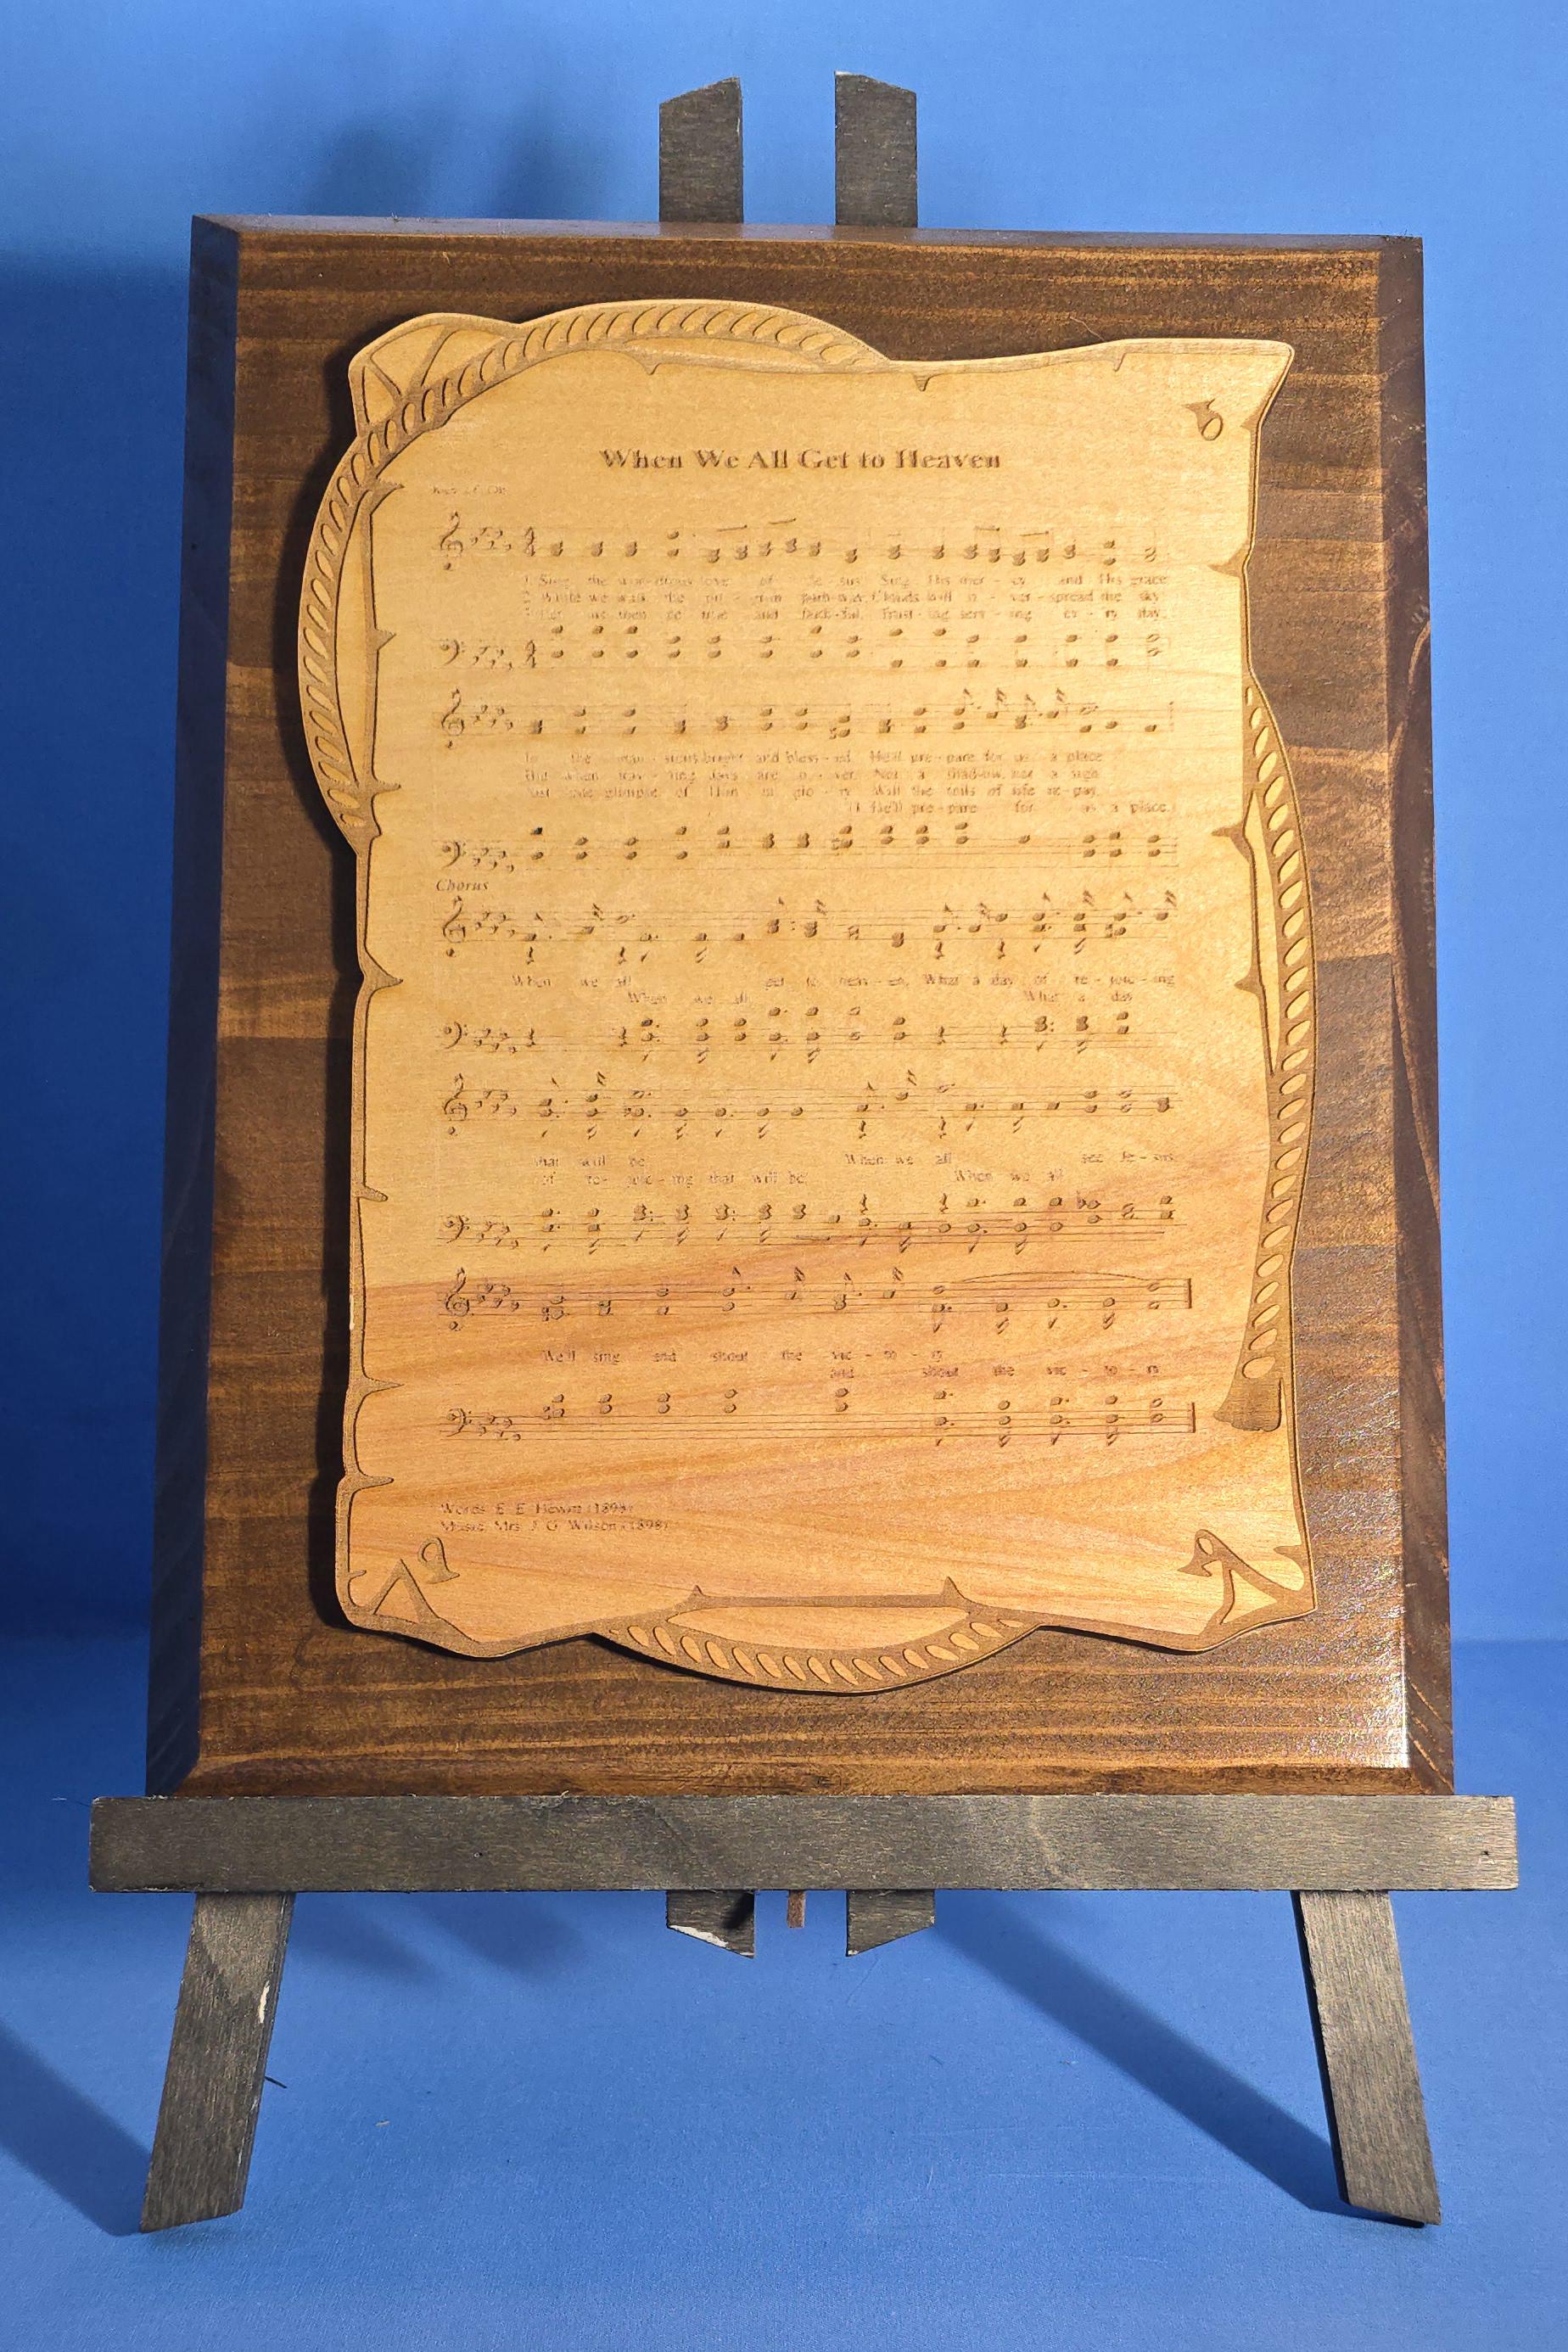 When We All Get to Heaven
1. Sing the won-drous love of Je-sus Sing His mer-cy and His grace
2. While we walk the pil-grim path-way Clouds will o-ver-spread the sky
us then be true and faith-ful, Trust-ing serv-ing ev-'ry day
In the man-sions bright and bless-ed He'll pre-pare for us a place
But when trav-'ling days are o-ver Not a shad-ow, not a sigh
Just one glimpse of Him in glo-ry Will the toils of life re-pay
He'll pre-pare for us a place.
Chorus
When we all get to heav-en, What a day of re-joic-ing
When we all What a day
that will be When we all see Je-sus
of re-joic-ing that will be When we all
We'll sing and shout the vic-to-ry
and shout the vic-to-ry
Words: E. E. Hewitt (1898)
Music: Mrs. J. G. Wilson (1898)